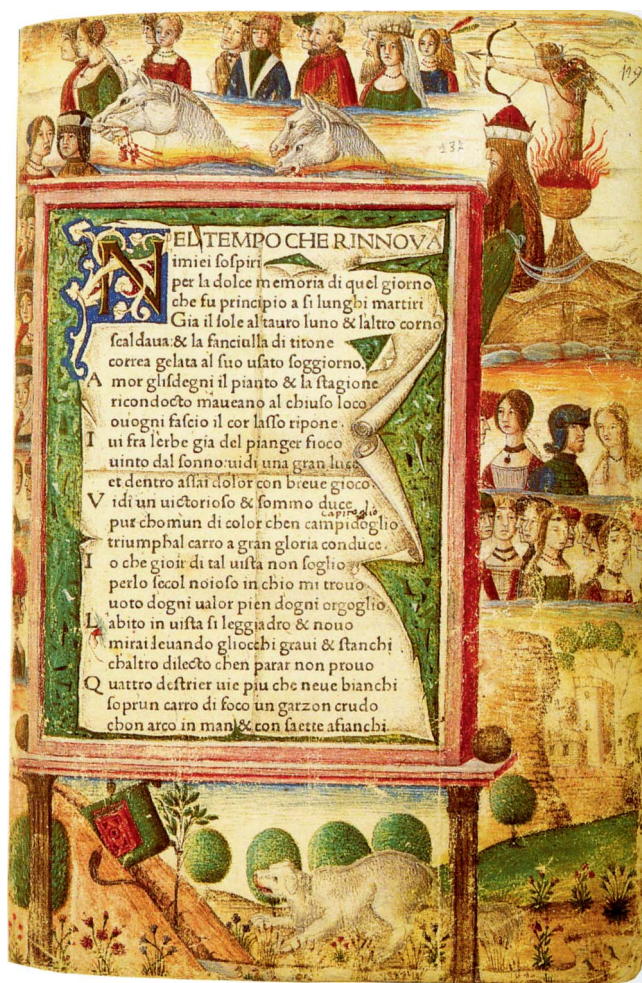 NEL TEMPO CHE RINNOVA
imiei sospiri
per la dolce memoria di quel giorno
che fu principio a si lunghi martiri
Gia il sole al tauro luno & laltro corno
scaldaua: & la fanciulla di titone
correa gelata al suo usato soggiorno.
Amor glisdegni il pianto & la stagione
ricondocto maueano al chiuso loco
ouogni fascio il cor lasso ripone.
Iui fra lerbe gia del pianger fioco
uinto dal sonno: uidi una gran luce
et dentro assai dolor con breue gioco.
Vidi un uictorioso & sommo duce
capitoglio
pur chomun di color chen campidoglio
triumphal carro a gran gloria conduce.
Io che gioir di tal uista non soglio
perlo secol noioso in chio mi trouo
uoto dogni ualor pien dogni orgoglio
Labito in uista si leggiadro & nouo
mirai leuando gliocchi graui & stanchi
chaltro dilecto chen parar non prouo
Quattro destrier uie piu che neue bianchi
soprun carro di foco un garzon crudo
chon arco in man & con saette afianchi
137